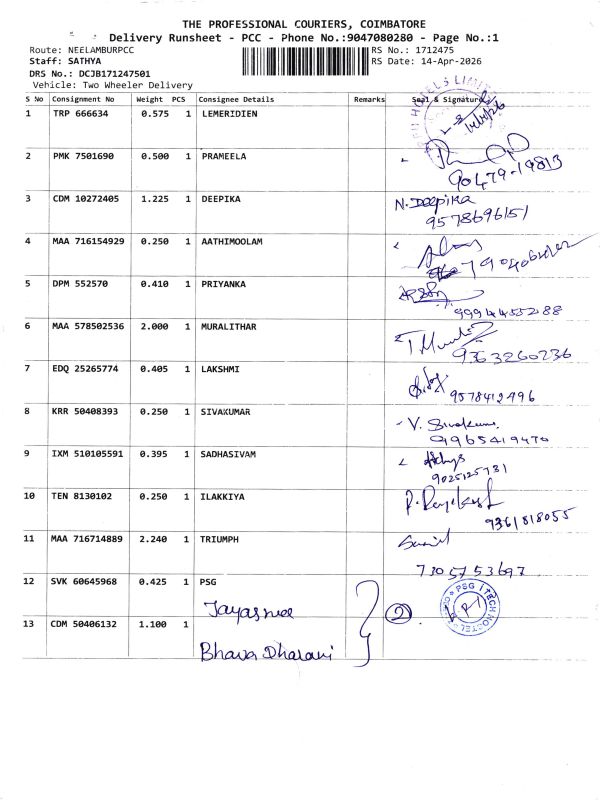 THE PROFESSIONAL COURIERS, COIMBATORE
Delivery Runsheet - PCC - Phone No.:9047080280 - Page No.:1
Route: NEELAMBURPCC RS No.: 1712475
Staff: SATHYA RS Date: 14-Apr-2026
DRS No.: DCJB171247501
Vehicle: Two Wheeler Delivery
S No Consignment No Weight PCS Consignee Details Remarks Seal & Signature
1 TRP 666634 0.575 1 LEMERIDIEN
2 PMK 7501690 0.500 1 PRAMEELA
90479-19813
3 CDM 10272405 1.225 1 DEEPIKA N. Deepika
9578696151
4 MAA 716154929 0.250 1 AATHIMOOLAM
5 DPM 552570 0.410 1 PRIYANKA
9994455288
6 MAA 578502536 2.000 1 MURALITHAR
9363260236
7 EDQ 25265774 0.405 1 LAKSHMI
9578412496
8 KRR 50408393 0.250 1 SIVAKUMAR V. Sivakumar
9965419470
9 IXM 510105591 0.395 1 SADHASIVAM
9025125731
10 TEN 8130102 0.250 1 ILAKKIYA
9361818055
11 MAA 716714889 2.240 1 TRIUMPH
7305753697
12 SVK 60645968 0.425 1 PSG
Jayashree 2 PSG ITECH HOSTEL
13 CDM 50406132 1.100 1
Bhava Dharani